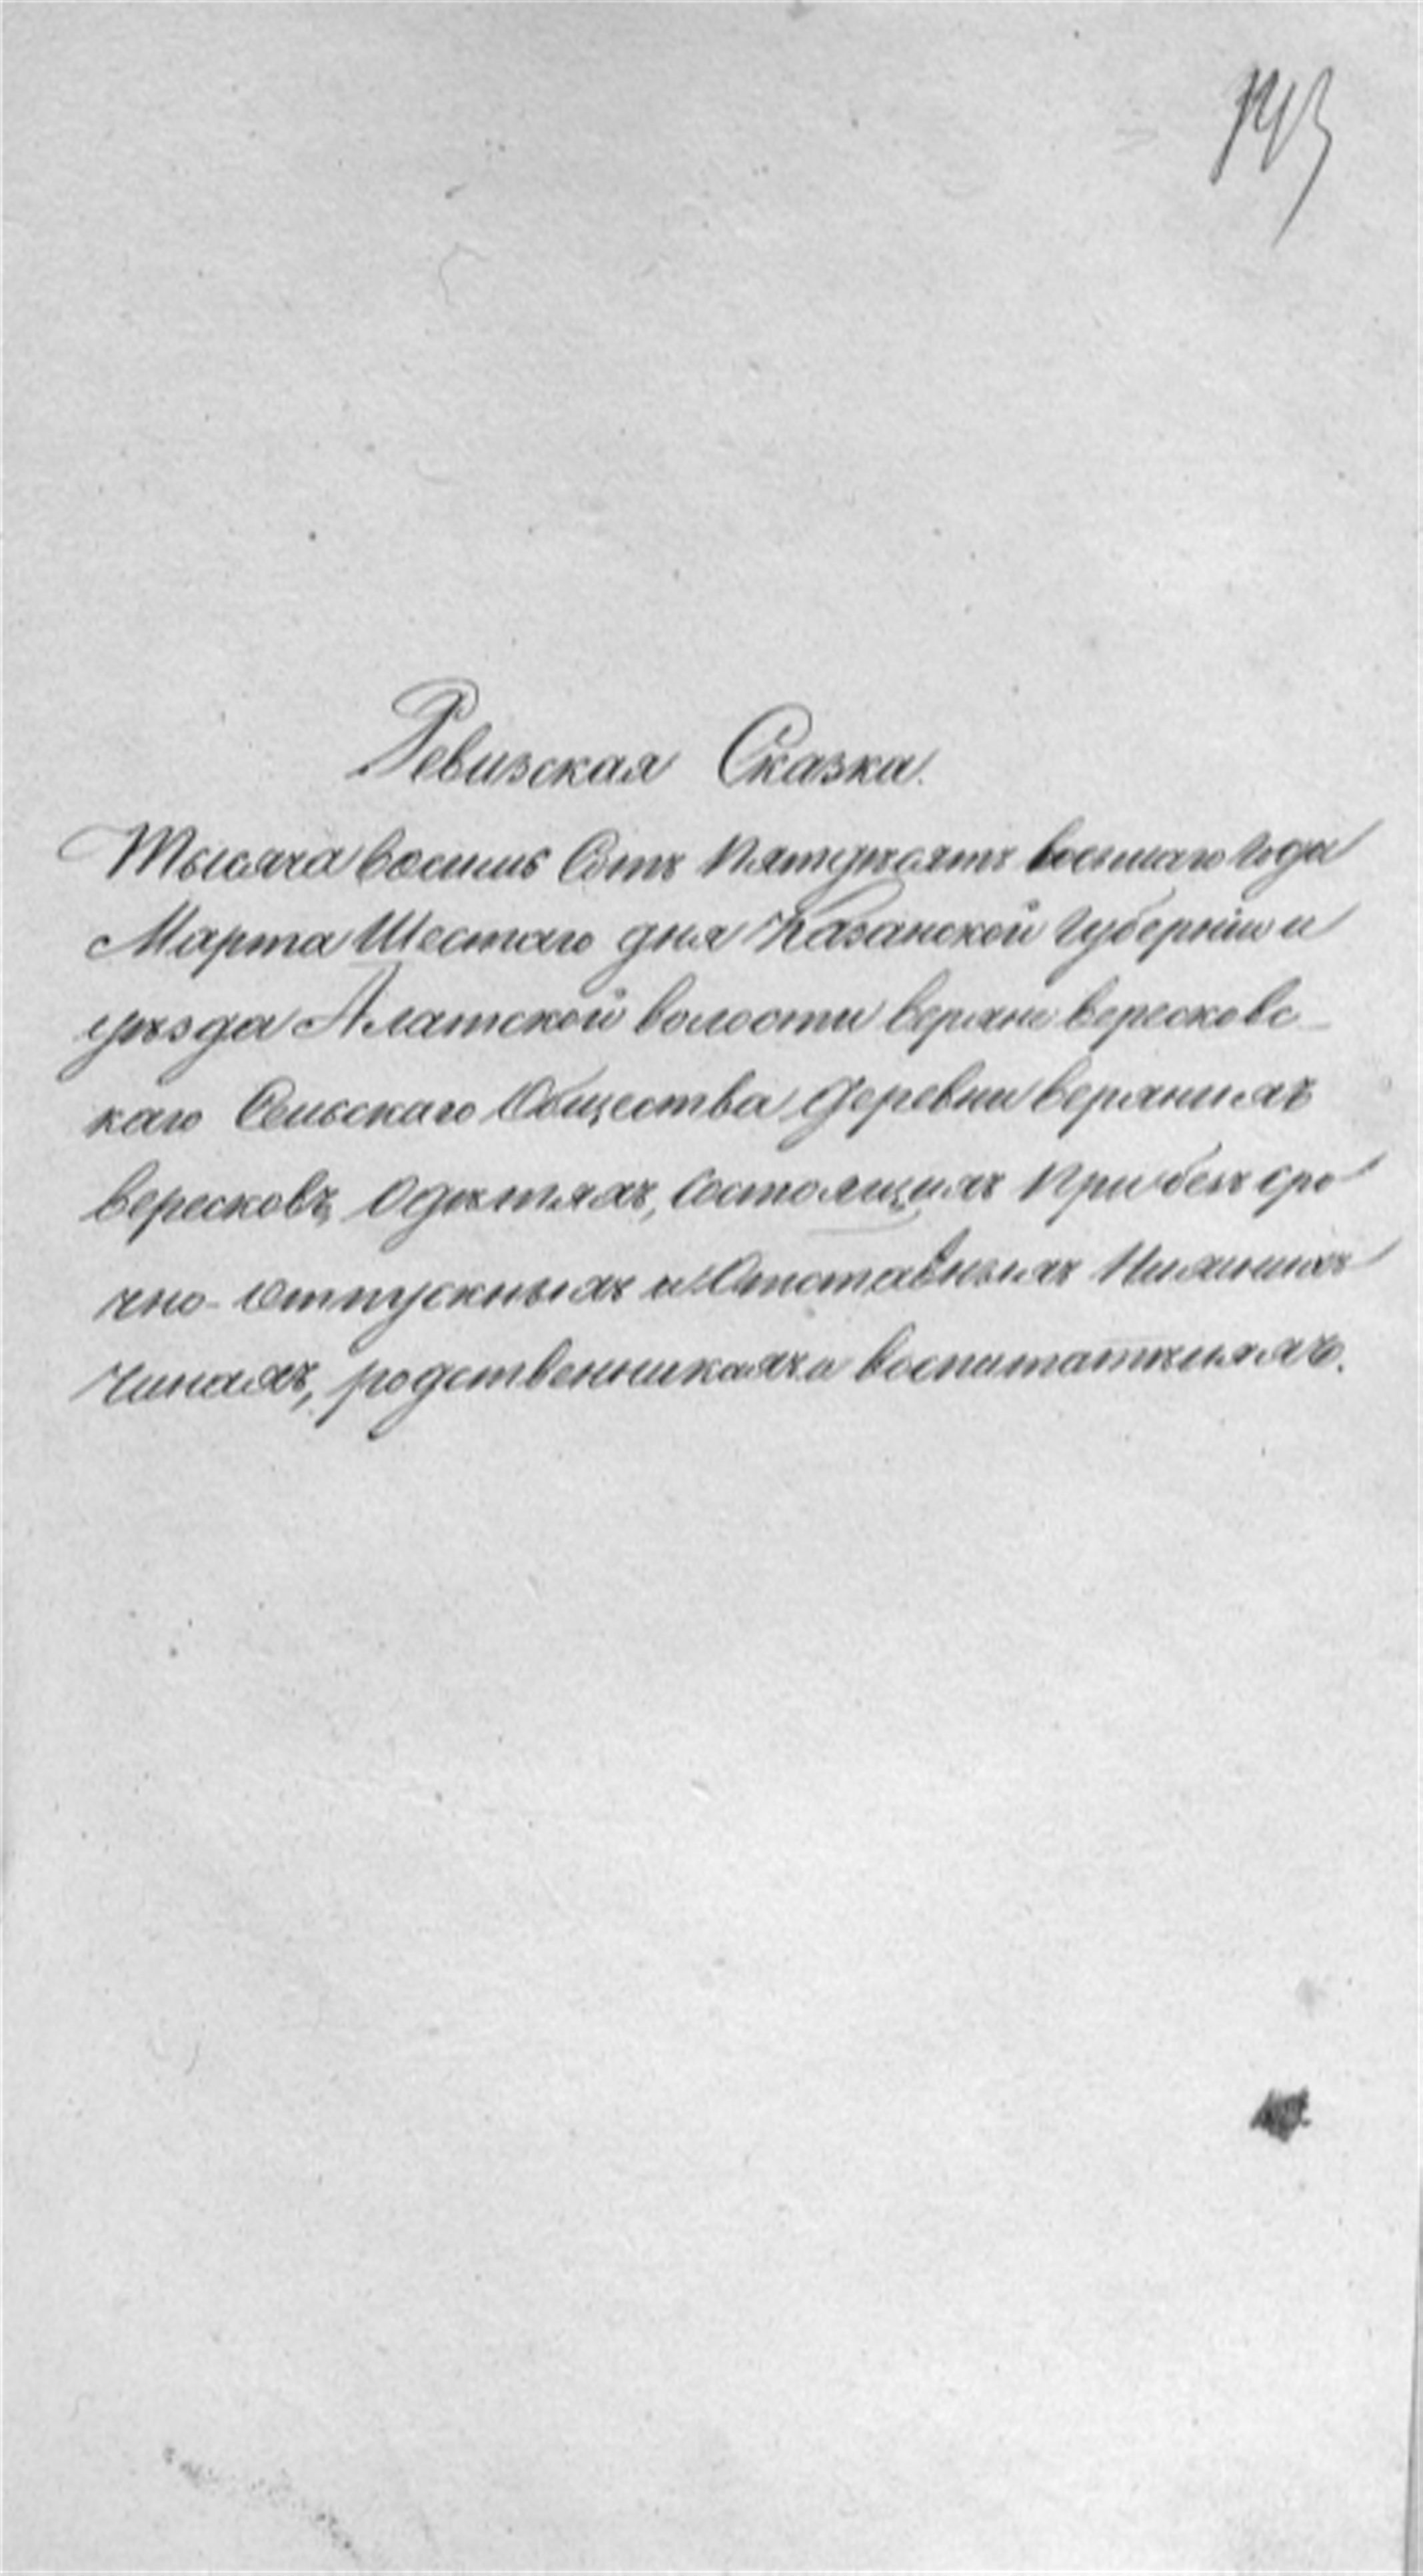 143
Ревизская Сказка.
Тысяча восемь Сотъ Пятидесятъ восьмаго Года
Марта Шестаго дня Казанской Губерніи и
уѣзда Алатской волости верхне вересковс-
каго Сельскаго Общества деревни верхнихъ
вересковъ, О дѣтяхъ, Состоящихъ При без сро
чно-отпускныхъ и Отставныхъ Нижнихъ
Чинахъ, родственникахъ и воспитателяхъ.